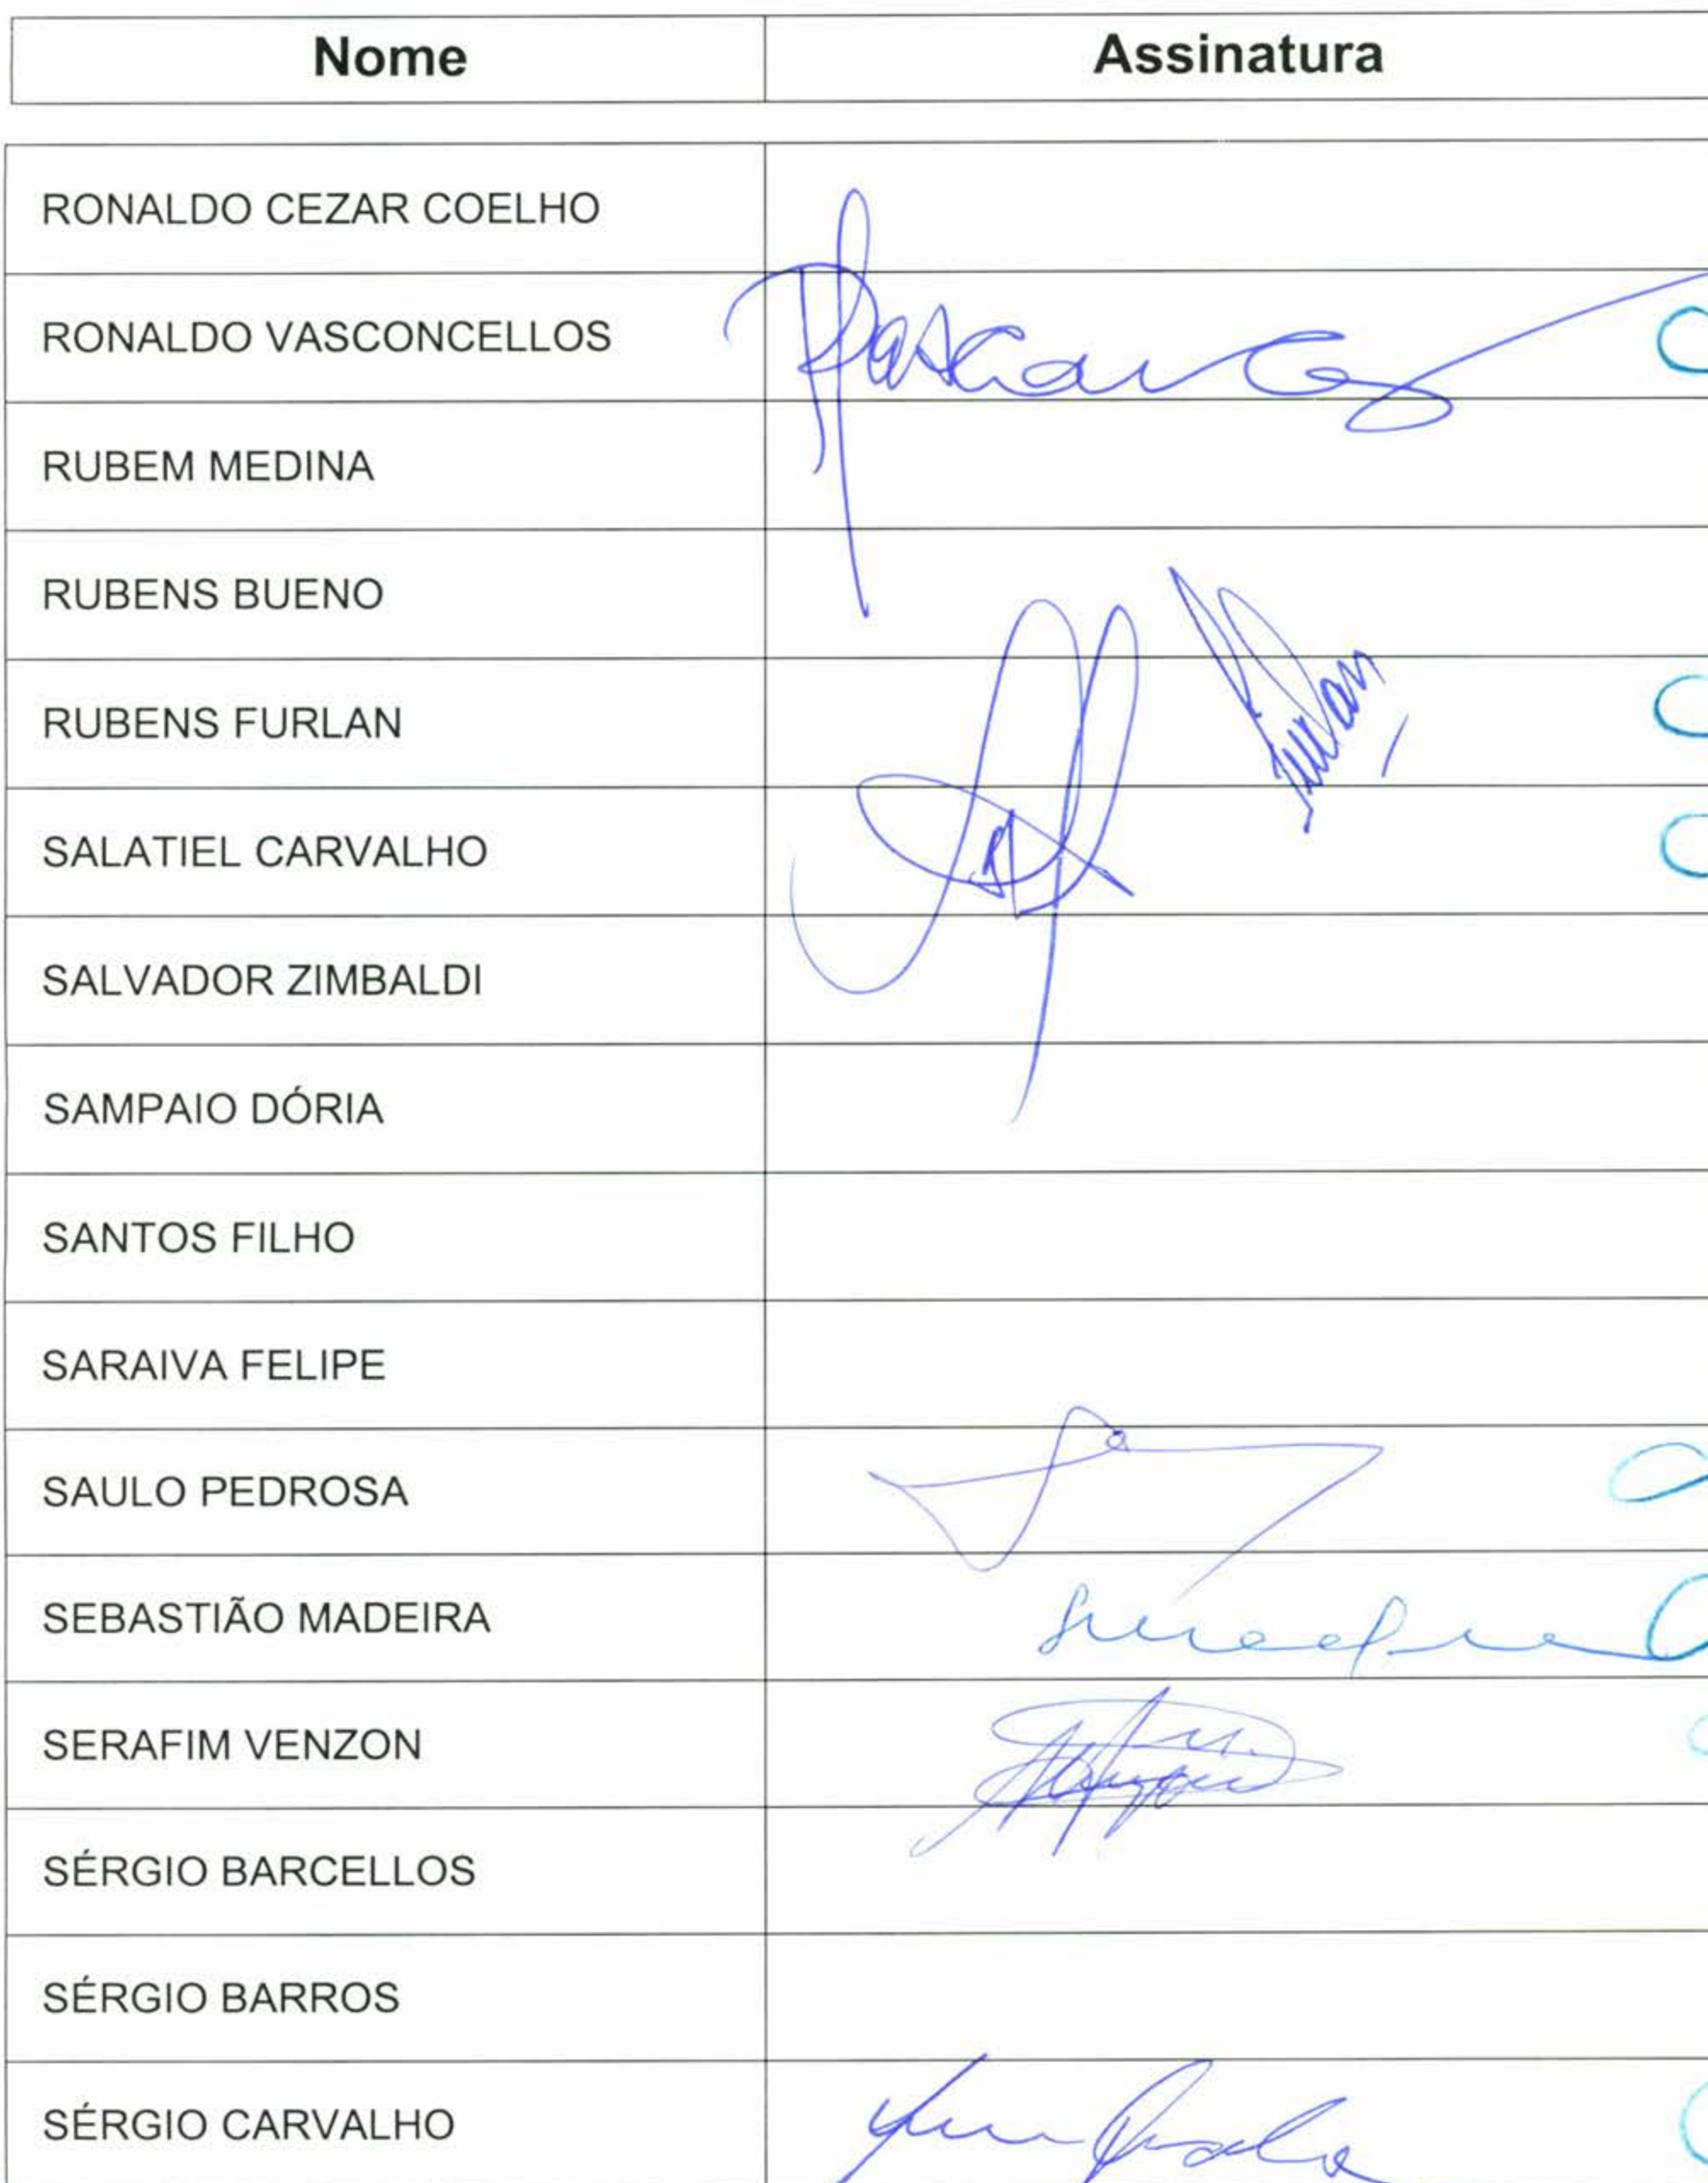 Nome Assinatura
RONALDO CEZAR COELHO
RONALDO VASCONCELLOS
RUBEM MEDINA
RUBENS BUENO
RUBENS FURLAN
SALATIEL CARVALHO
SALVADOR ZIMBALDI
SAMPAIO DÓRIA
SANTOS FILHO
SARAIVA FELIPE
SAULO PEDROSA
SEBASTIÃO MADEIRA
SERAFIM VENZON
SÉRGIO BARCELLOS
SÉRGIO BARROS
SÉRGIO CARVALHO